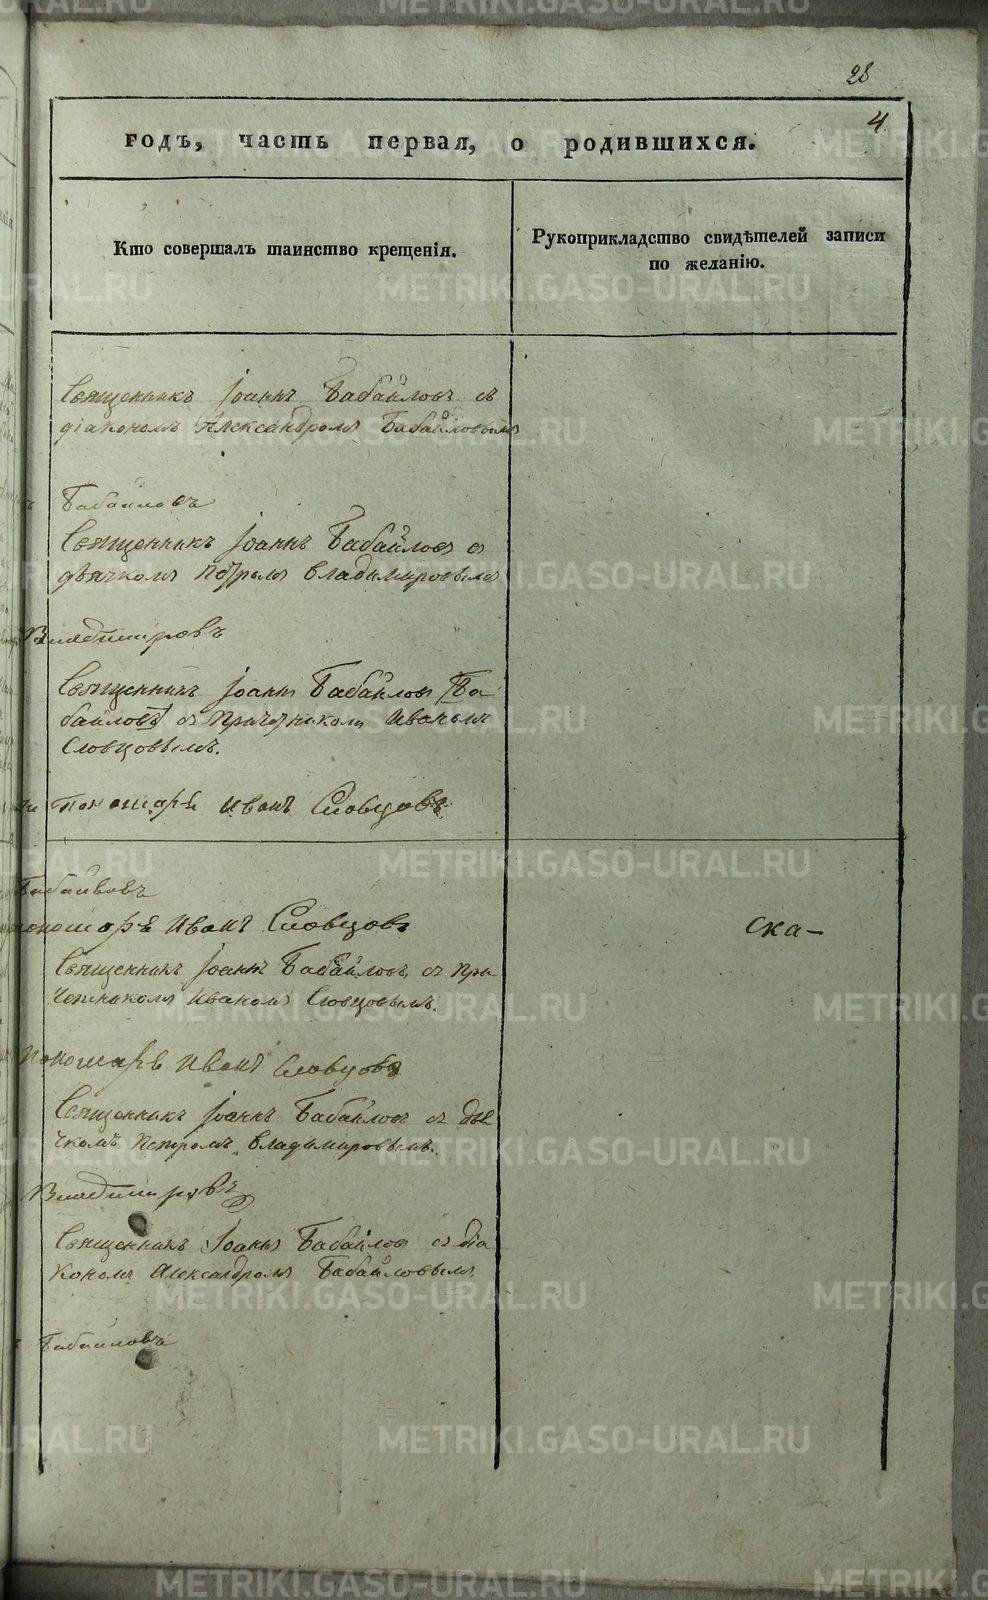 28
4
годъ, часть первая, о родившихся.
Кто совершалъ таинство крещенія.
Рукоприкладство свидѣтелей записи
по желанію.
Священникъ Іоаннъ Бабайловъ съ
діакономъ Александромъ Бабайловымъ
Бабайловъ
Священникъ Іоаннъ Бабайловъ съ
дьячкомъ Петромъ Владимировымъ
Владимировъ
Священникъ Іоаннъ Бабайловъ Ба-
байловъ съ Причетникомъ Иваномъ
Словцовымъ.
Пономарь Иванъ Словцовъ
Бабайловъ
пономарь Иванъ Словцовъ
ска-
Священникъ Іоаннъ Бабайловъ съ при-
четникомъ Иваномъ Словцовымъ.
Пономарь Иванъ Словцовъ
Священникъ Іоаннъ Бабайловъ съ дья
чкомъ Петромъ Владимировымъ.
Владимировъ
Священникъ Іоаннъ Бабайловъ съ діа
кономъ Александромъ Бабайловымъ
Бабайловъ
METRIKI.GASO-URAL.RU